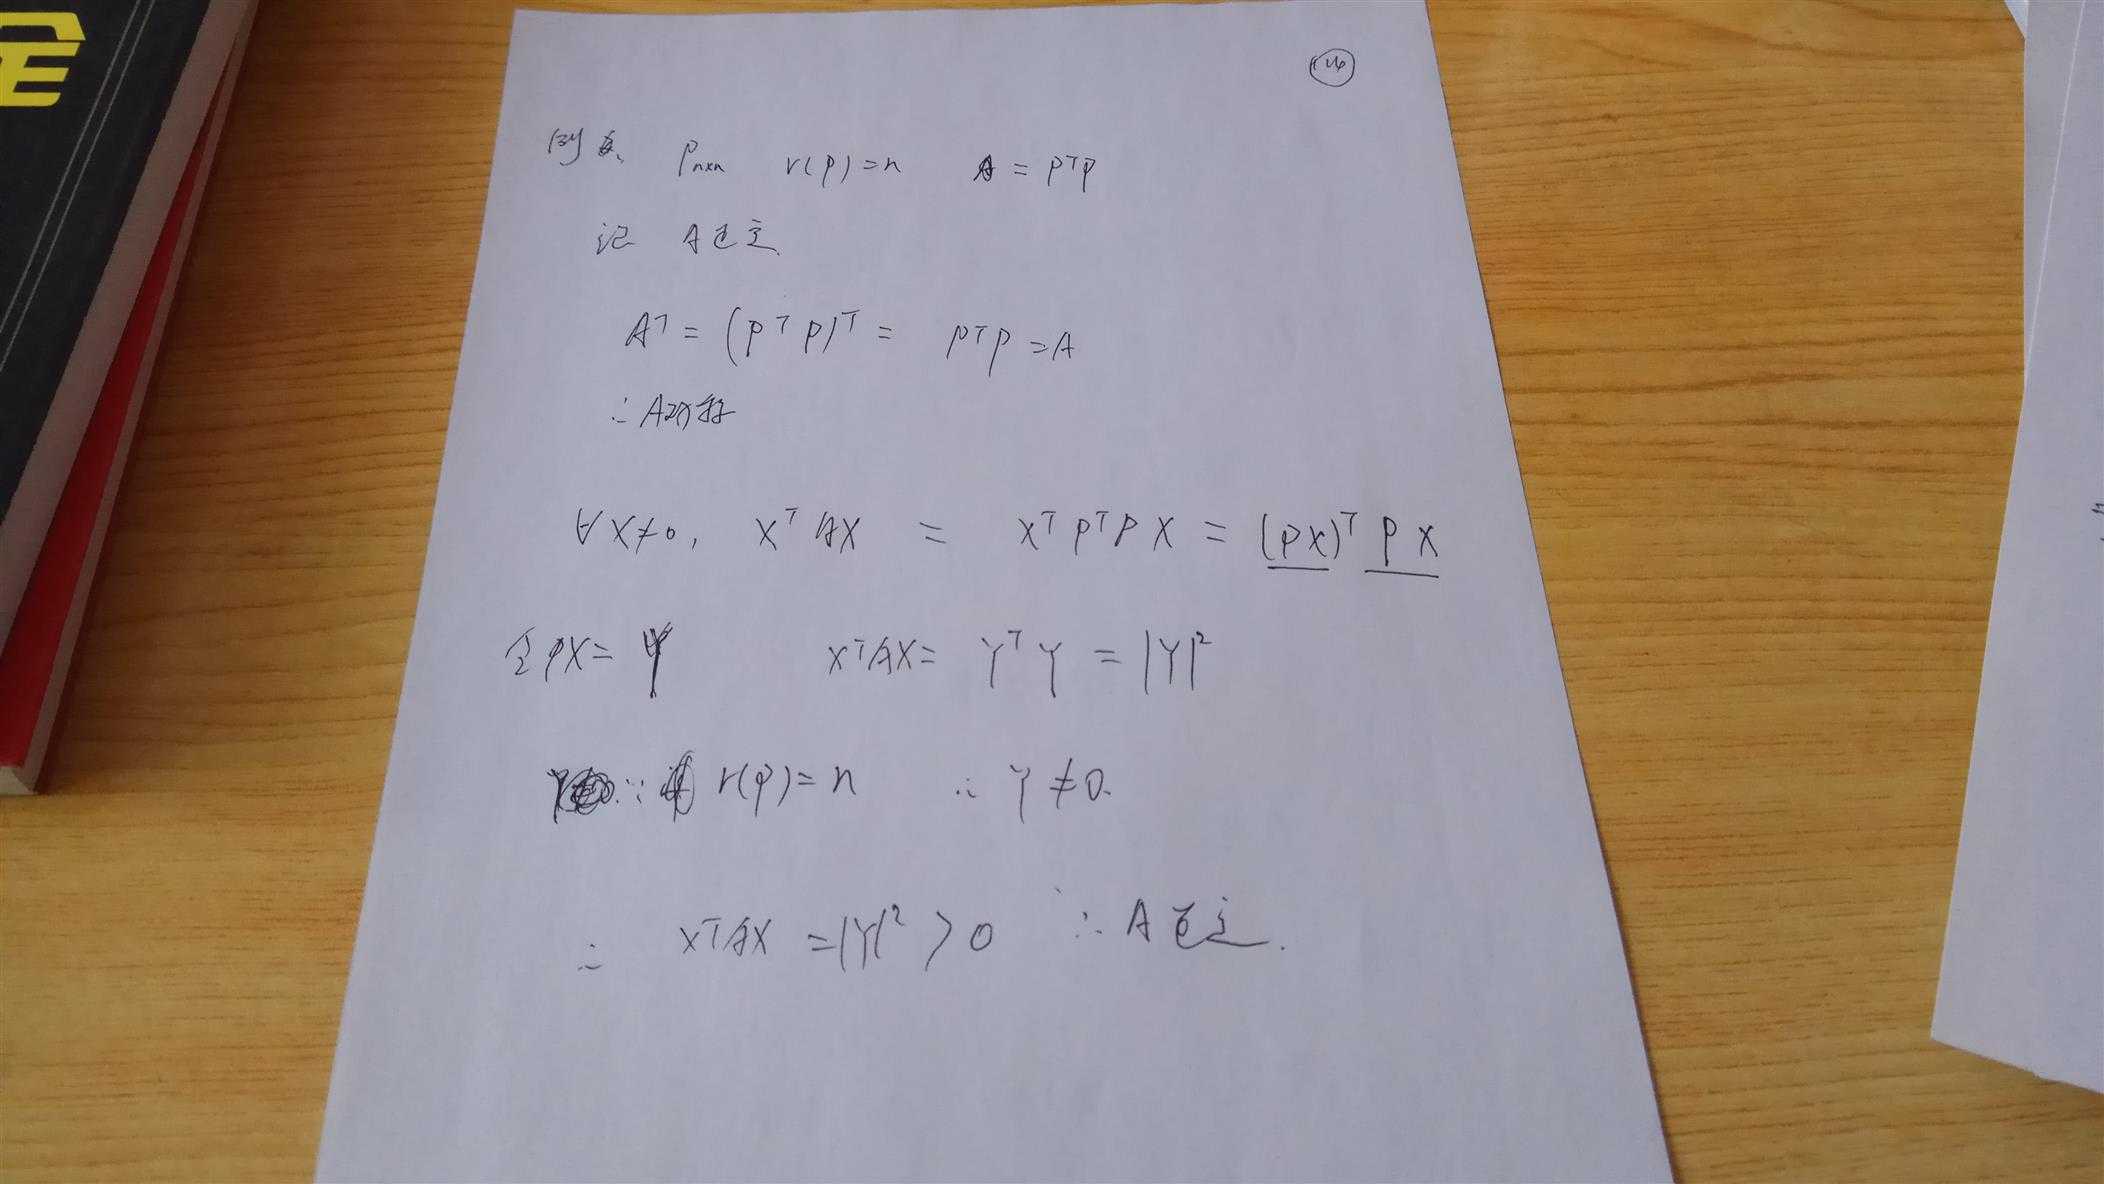 例 P_{n×n} r(P)=n A = P^T P
证 A正定
A^T = (P^T P)^T = P^T P = A
∴ A对称
∀X≠0, X^T AX = X^T P^T P X = (PX)^T P X
令PX = Y X^T AX = Y^T Y = |Y|²
∵ r(P)=n ∴ Y≠0.
∴ X^T AX = |Y|² > 0 ∴ A正定.